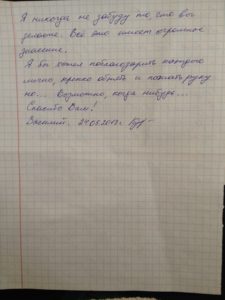 Я никогда не забуду то, что вы
делаете. Всё это имеет огромное
значение.
Я бы хотел поблагодарить каждого
лично, крепко обнять и пожать руку
но... Возможно, когда нибудь...
Спасибо Вам!
Василий. 24.05.2017г.